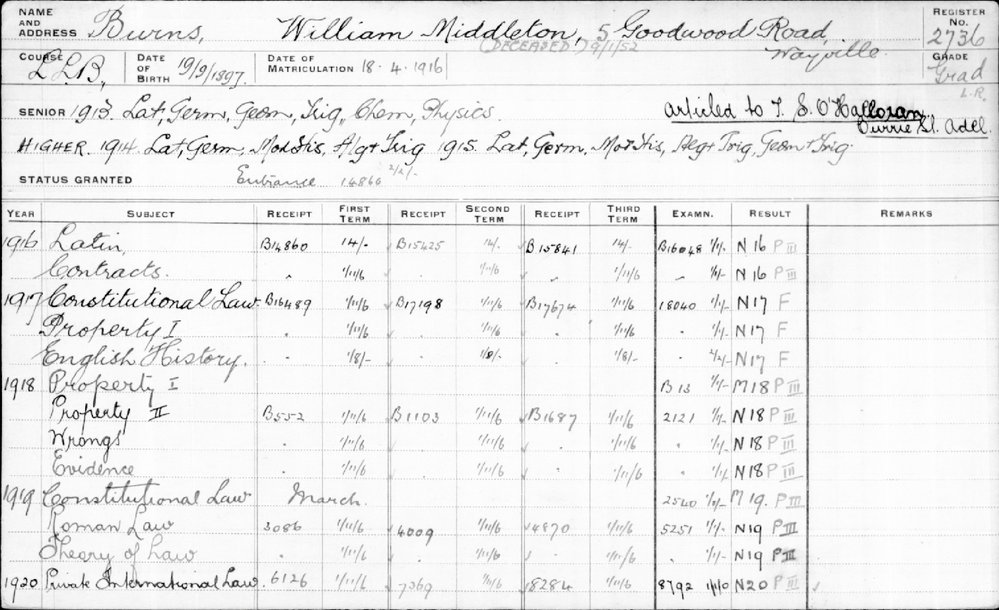 NAME AND ADDRESS Burns, William Middleton, 5 Goodwood Road, Wayville REGISTER No. 2736
(DECEASED) 9/1/52
COURSE LLB, DATE OF BIRTH 19/9/1897. DATE OF MATRICULATION 18.4.1916 GRADE Grad L.R.
SENIOR 1913 Lat, Germ, Geom, Trig, Chem, Physics. Articled to T. S. O'Halloran
Currie St. Adel.
HIGHER. 1914 Lat, Germ, Mod His, Alg + Trig 1915 Lat, Germ. Mod His, Alg + Trig, Geom + Trig
STATUS GRANTED Entrance 14860 2/2/-
YEAR SUBJECT RECEIPT FIRST TERM RECEIPT SECOND TERM RECEIPT THIRD TERM EXAMN. RESULT REMARKS
1916 Latin, B14860 14/- B15425 14/- B15841 14/- B16048 1/1/- N 16 P III
Contracts. " 1/11/6 " 1/11/6 " 1/11/6 " 1/1/- N 16 P III
1917 Constitutional Law B16489 1/11/6 B17198 1/11/6 B17674 1/11/6 18040 1/1/- N17 F
Property I . 1/11/6 . 1/11/6 . 1/11/6 . 1/1/- N17 F
English History. . 1/8/- . 1/8/- . 1/8/- . 2/2/- N17 F
1918 Property I B13 1/1/- M18 P III
Property II B552 1/11/6 B1103 1/11/6 B1687 1/11/6 2121 1/1/- N18 P III
Wrongs . 1/11/6 . 1/11/6 . 1/11/6 . 1/1/- N18 P III
Evidence . 1/11/6 . 1/11/6 . 1/11/6 . 1/1/- N18 P III
1919 Constitutional Law March. 2540 1/1/- M 19. P III
Roman Law 3086 1/11/6 4009 1/11/6 4870 1/11/6 5251 1/1/- N19 P III
Theory of Law . 1/11/6 . 1/11/6 . 1/11/6 . 1/1/- N19 P III
1920 Private International Law .6126 1/11/6 7369 1/11/6 8284 1/11/6 8792 N20 P III